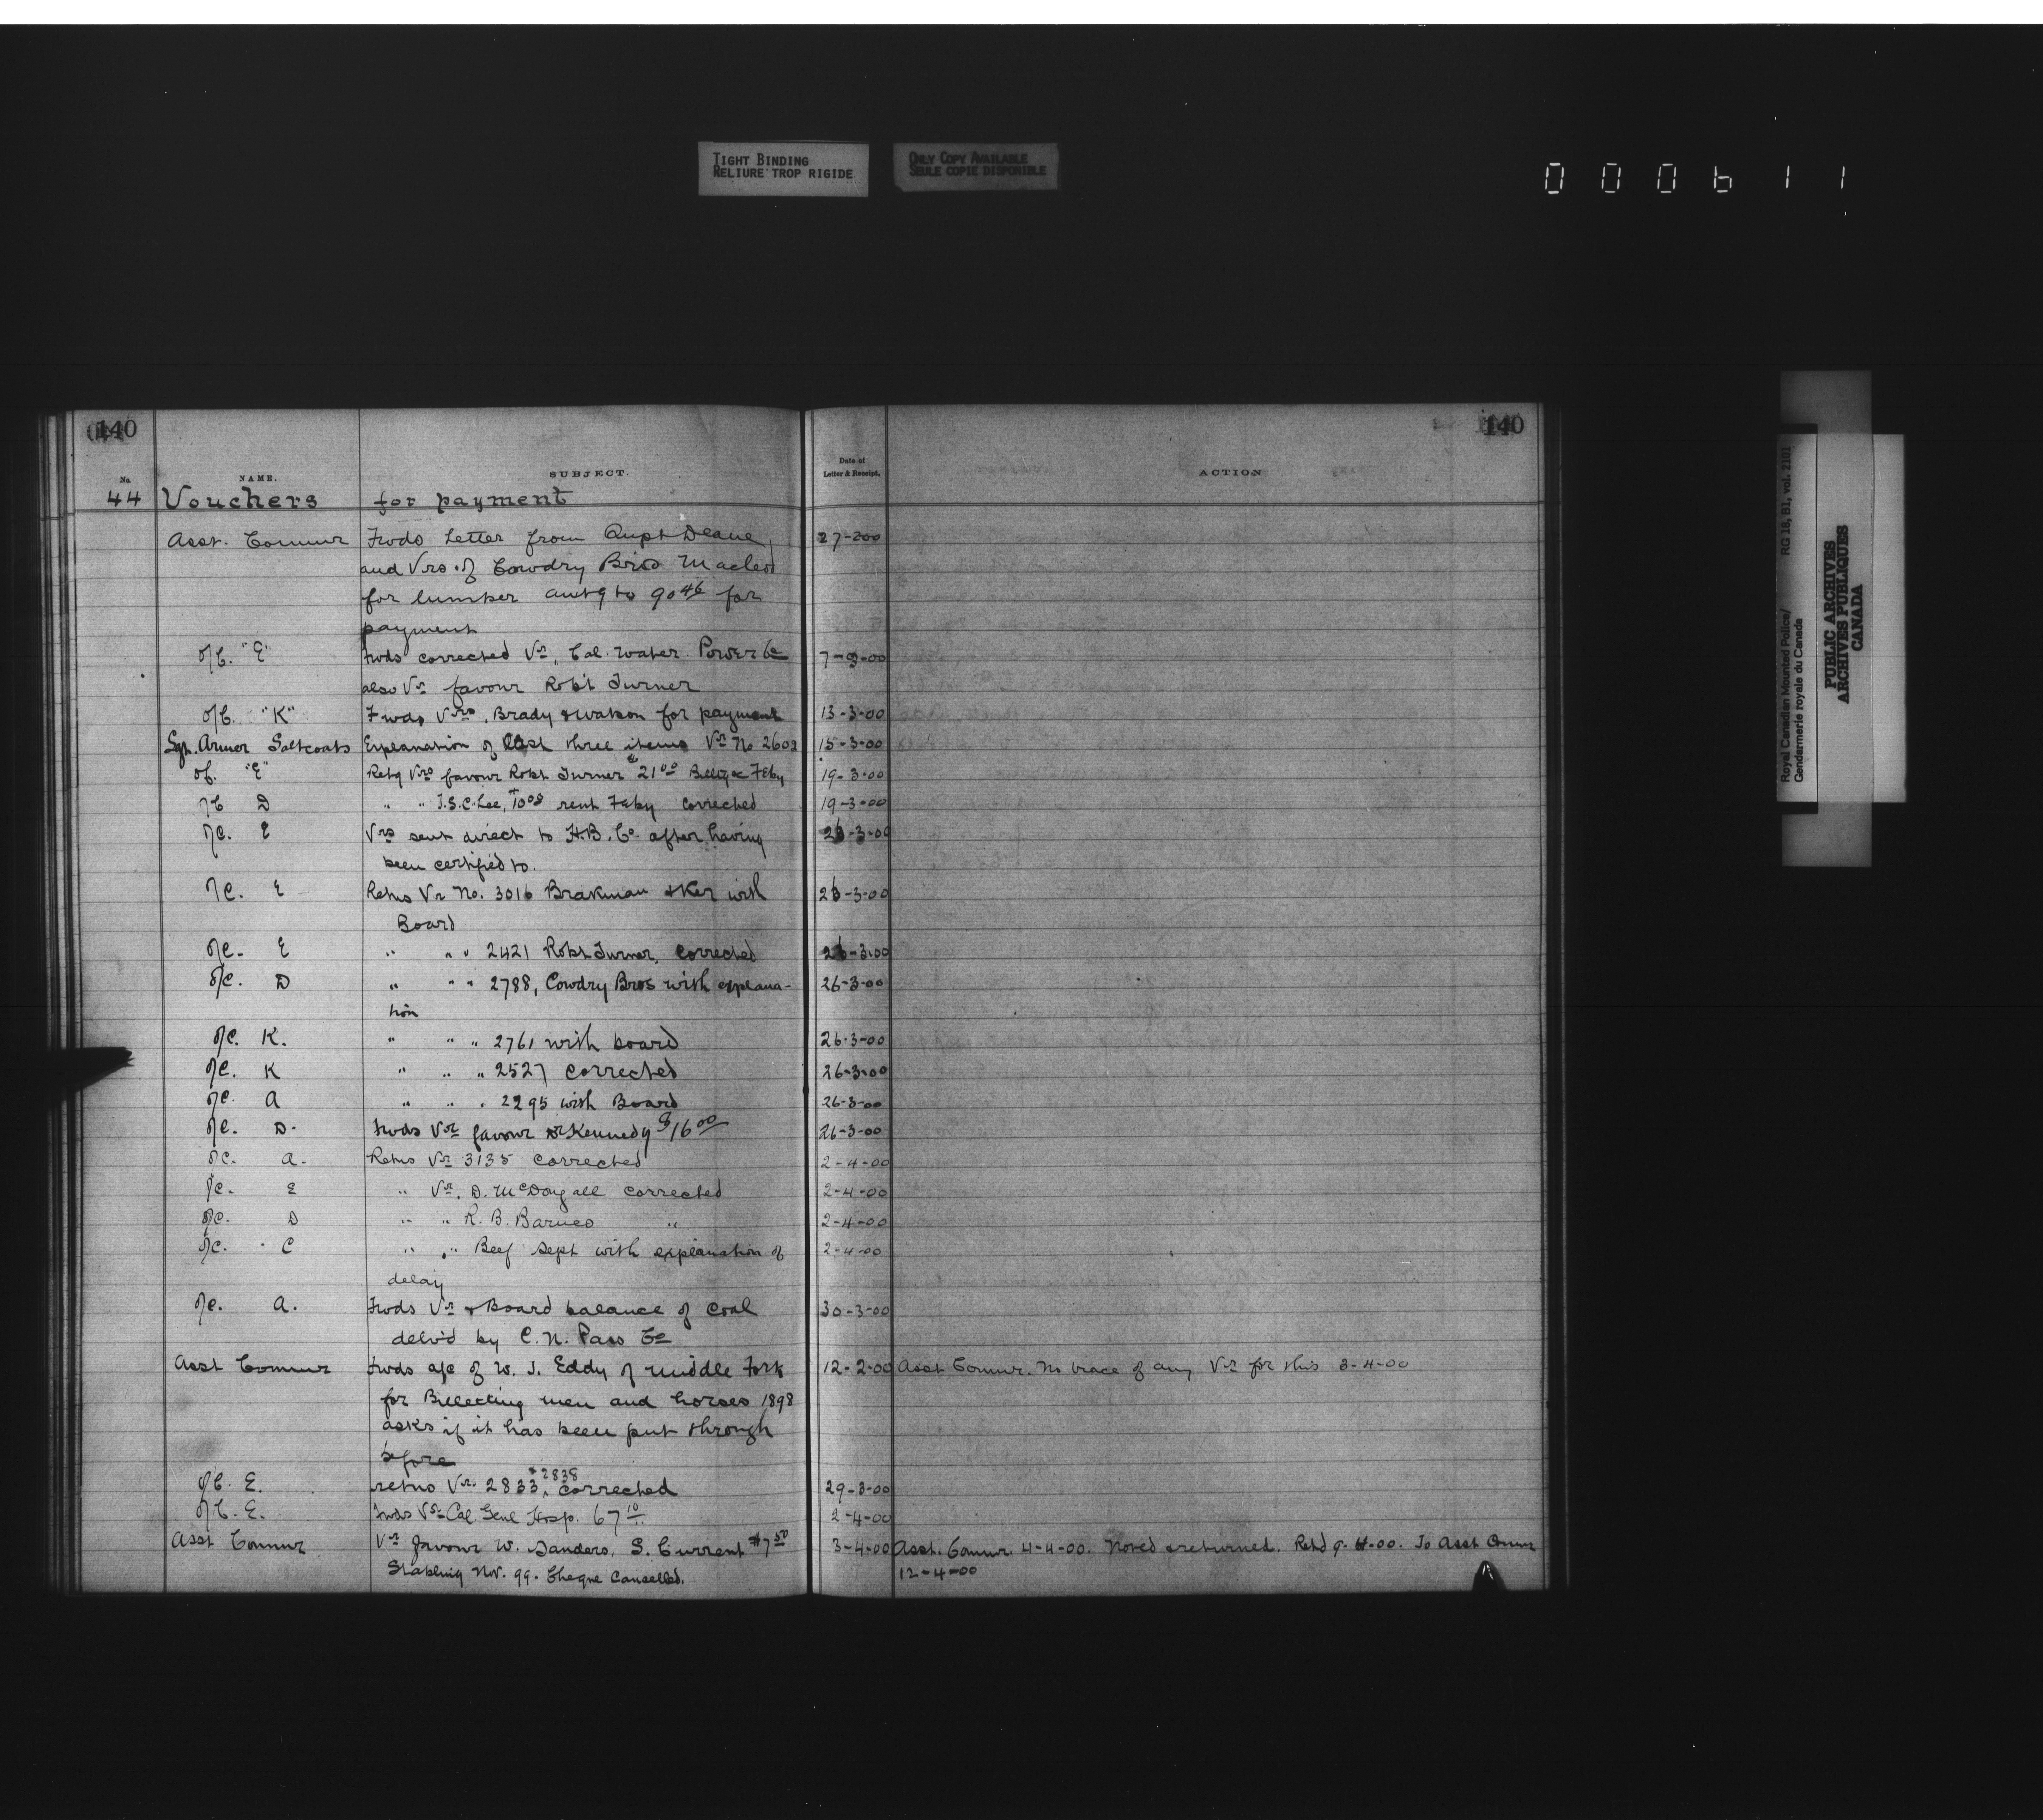 TIGHT BINDING
RELIURE TROP RIGIDE
ONLY COPY AVAILABLE
SEULE COPIE DISPONIBLE
000611
140 140
No. NAME. SUBJECT. Date of Letter & Receipt. ACTION
44 Vouchers for payment
Asst. Commr Fwds letter from Supt Deane 27-2-00
and Vrs of Cowdry Bros Macleod
for lumber amtg to 90 46 for
payment
O/C. "E" fwds corrected Vr, Cal. Water Power Co 7-3-00
also Vr favour Robt Turner
O/C. "K" Fwds Vrs, Brady & Watson for payment 13-3-00
Sgt. Armer Saltcoats Explanation of last three items Vr No 2602 15-3-00
O/C. "E" Retg Vrs favour Robt Turner $21 00 Billtg & Feby 19-3-00
O/C D " " J.S.C. Lee, $10 00 rent Feby corrected 19-3-00
O/C. E Vrs sent direct to H.B. Co after having 26-3-00
been certified to.
O/C. E Retns Vr No. 3016 Brakman & Ker with 26-3-00
Board
O/C. E " " " 2421 Robt Turner, corrected 26-3-00
O/C. D " " " 2788, Cowdry Bros with explana- 26-3-00
tion
O/C. K. " " " 2761 with board 26-3-00
O/C. K " " " 2527 corrected 26-3-00
O/C. A " " " 2295 with Board 26-3-00
O/C. D. Fwds Vr favour Dr Kennedy $16 00 26-3-00
O/C. A. Retns Vr 3135 corrected 2-4-00
O/C. E " Vr. D. McDougall corrected 2-4-00
O/C. D " " R. B. Barnes " 2-4-00
O/C. C " " Beef Sept with explanation of 2-4-00
delay
O/C. A. Fwds Vr & Board balance of coal 30-3-00
delv'd by C. N. Pass Co
Asst Commr Fwds a/c of W. J. Eddy of Middle Fork 12-2-00 Asst Commr. No trace of any Vr for this 3-4-00
for Billetting men and horses 1898
asks if it has been put through
before
O/C. E. retns Vr. 2833, & 2838 corrected 29-3-00
O/C. E. Fwds Vr Cal Genl Hosp. 67 10 2-4-00
Asst Commr Vr favour W. Sanders, S. Current $7 50 3-4-00 Asst. Commr 4-4-00. Noted & returned. Retd 9-4-00. To Asst Commr
Stabling Nov. 99. Cheque Cancelled. 12-4-00
Royal Canadian Mounted Police/ RG 18, B1, vol. 2101
Gendarmerie royale du Canada
PUBLIC ARCHIVES
ARCHIVES PUBLIQUES
CANADA